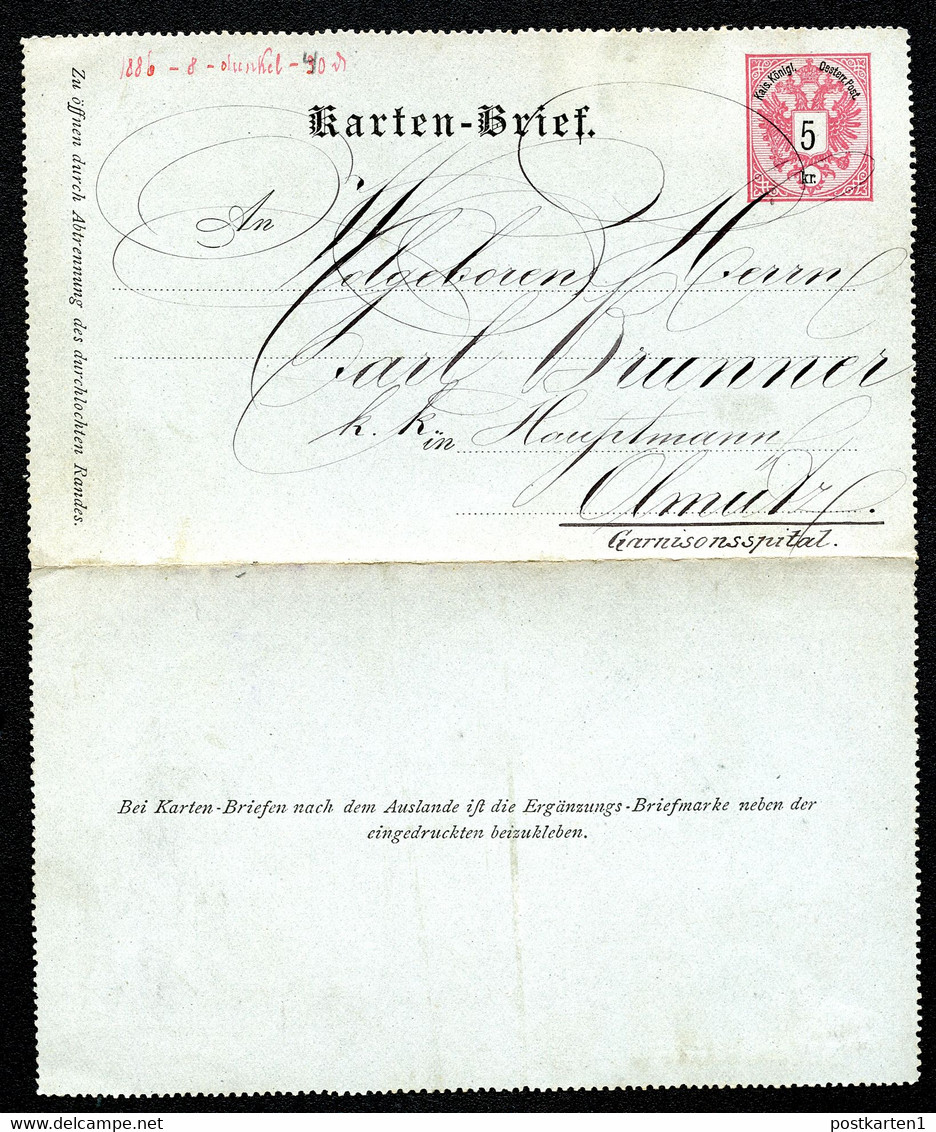 1886 - 8 - dunkel -
Karten-Brief.
Kais. Königl. Oesterr. Post.
5
kr.
An
Wolgeboren Herrn
Carl Brunner
k. k. Hauptmann
in Olmütz.
Garnisonsspital.
Zu öffnen durch Abtrennung des durchlochten Randes.
Bei Karten-Briefen nach dem Auslande iſt die Ergänzungs-Briefmarke neben der
eingedruckten beizukleben.
postkarten1